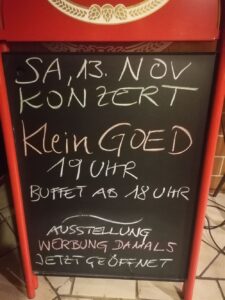 SA, 13. NOV
KONZERT
Klein GOED
19 UHR
BUFFET AB 18 UHR
AUSSTELLUNG
WERBUNG DAMALS
JETZT GEÖFFNET